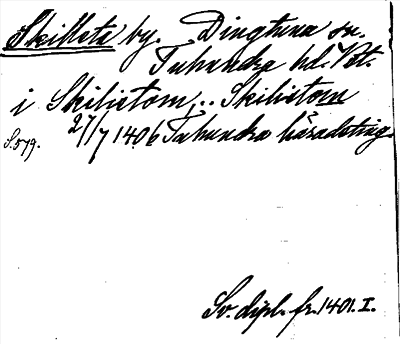 Skilleta by. Dingtuna sn.
Tuhundra hd. Vstm.
i Skilistom, .. Skilistom
27/7 1406 Tuhundra häradsting.
S. 579.
Sv. dipl. fr. 1401. I.